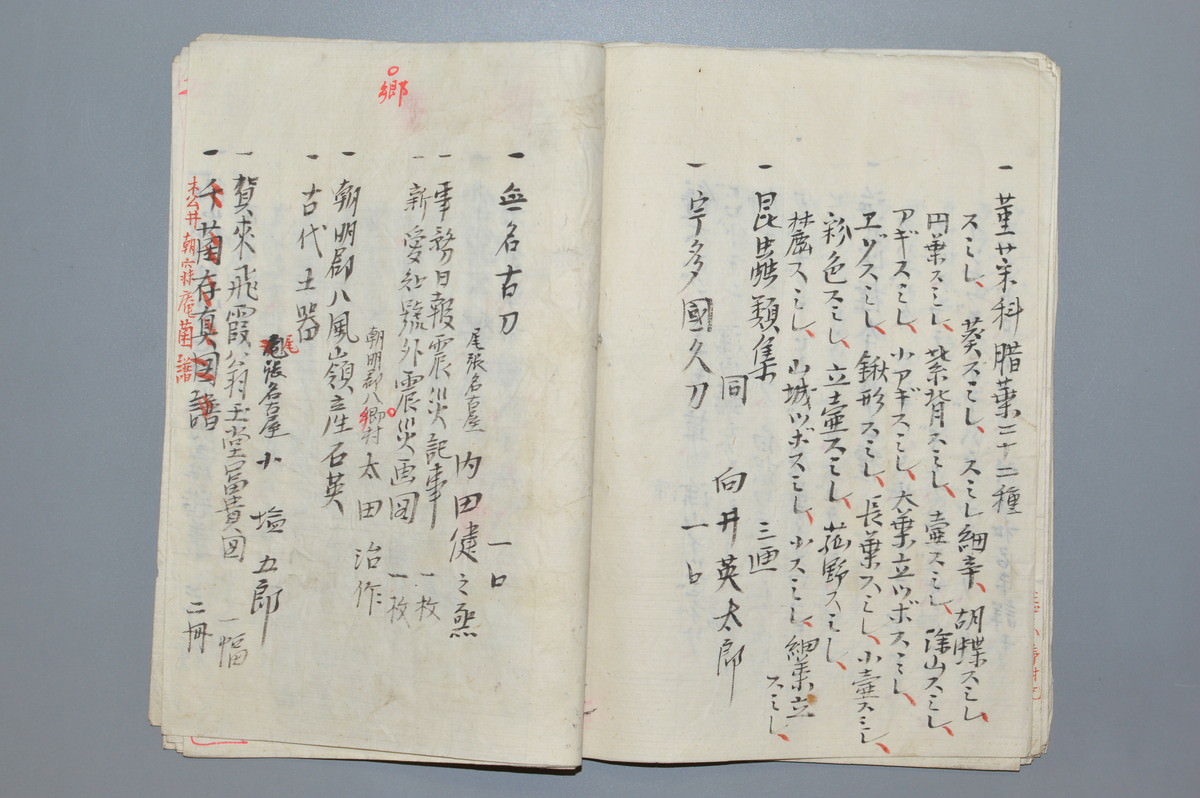 一 菫菜科腊葉二十二種
スミレ、葵スミレ、スミレ細辛、胡蝶スミレ、
円葉スミレ、紫背スミレ、壷スミレ、深山スミレ、
アギスミレ、小アギスミレ、大葉立ツボスミレ、
ヱゾスミレ、鍬形スミレ、長葉スミレ、小壷スミレ、
彩色スミレ、立壷スミレ、菰野スミレ、
叢スミレ、山城ツボスミレ、小スミレ、細葉立
スミレ、
一 昆蟲類集 三匣
同 向井英太郎
一 宇多國久刀 一口
一 無名古刀 一口
尾張名古屋 内田健之烝
一 軍務日報震災記事 一枚
一 新愛知號外震災画図 一枚
朝明郡八郷村 太田治作
郷
一 朝明郡八風山嶺産石英
一 古代土器
尾張名古屋 小塩五郎
尾
一 賀来飛霞翁玉堂冨貴図 一幅
一 千蘭存真図譜 二冊
松井朝寐庵蘭譜